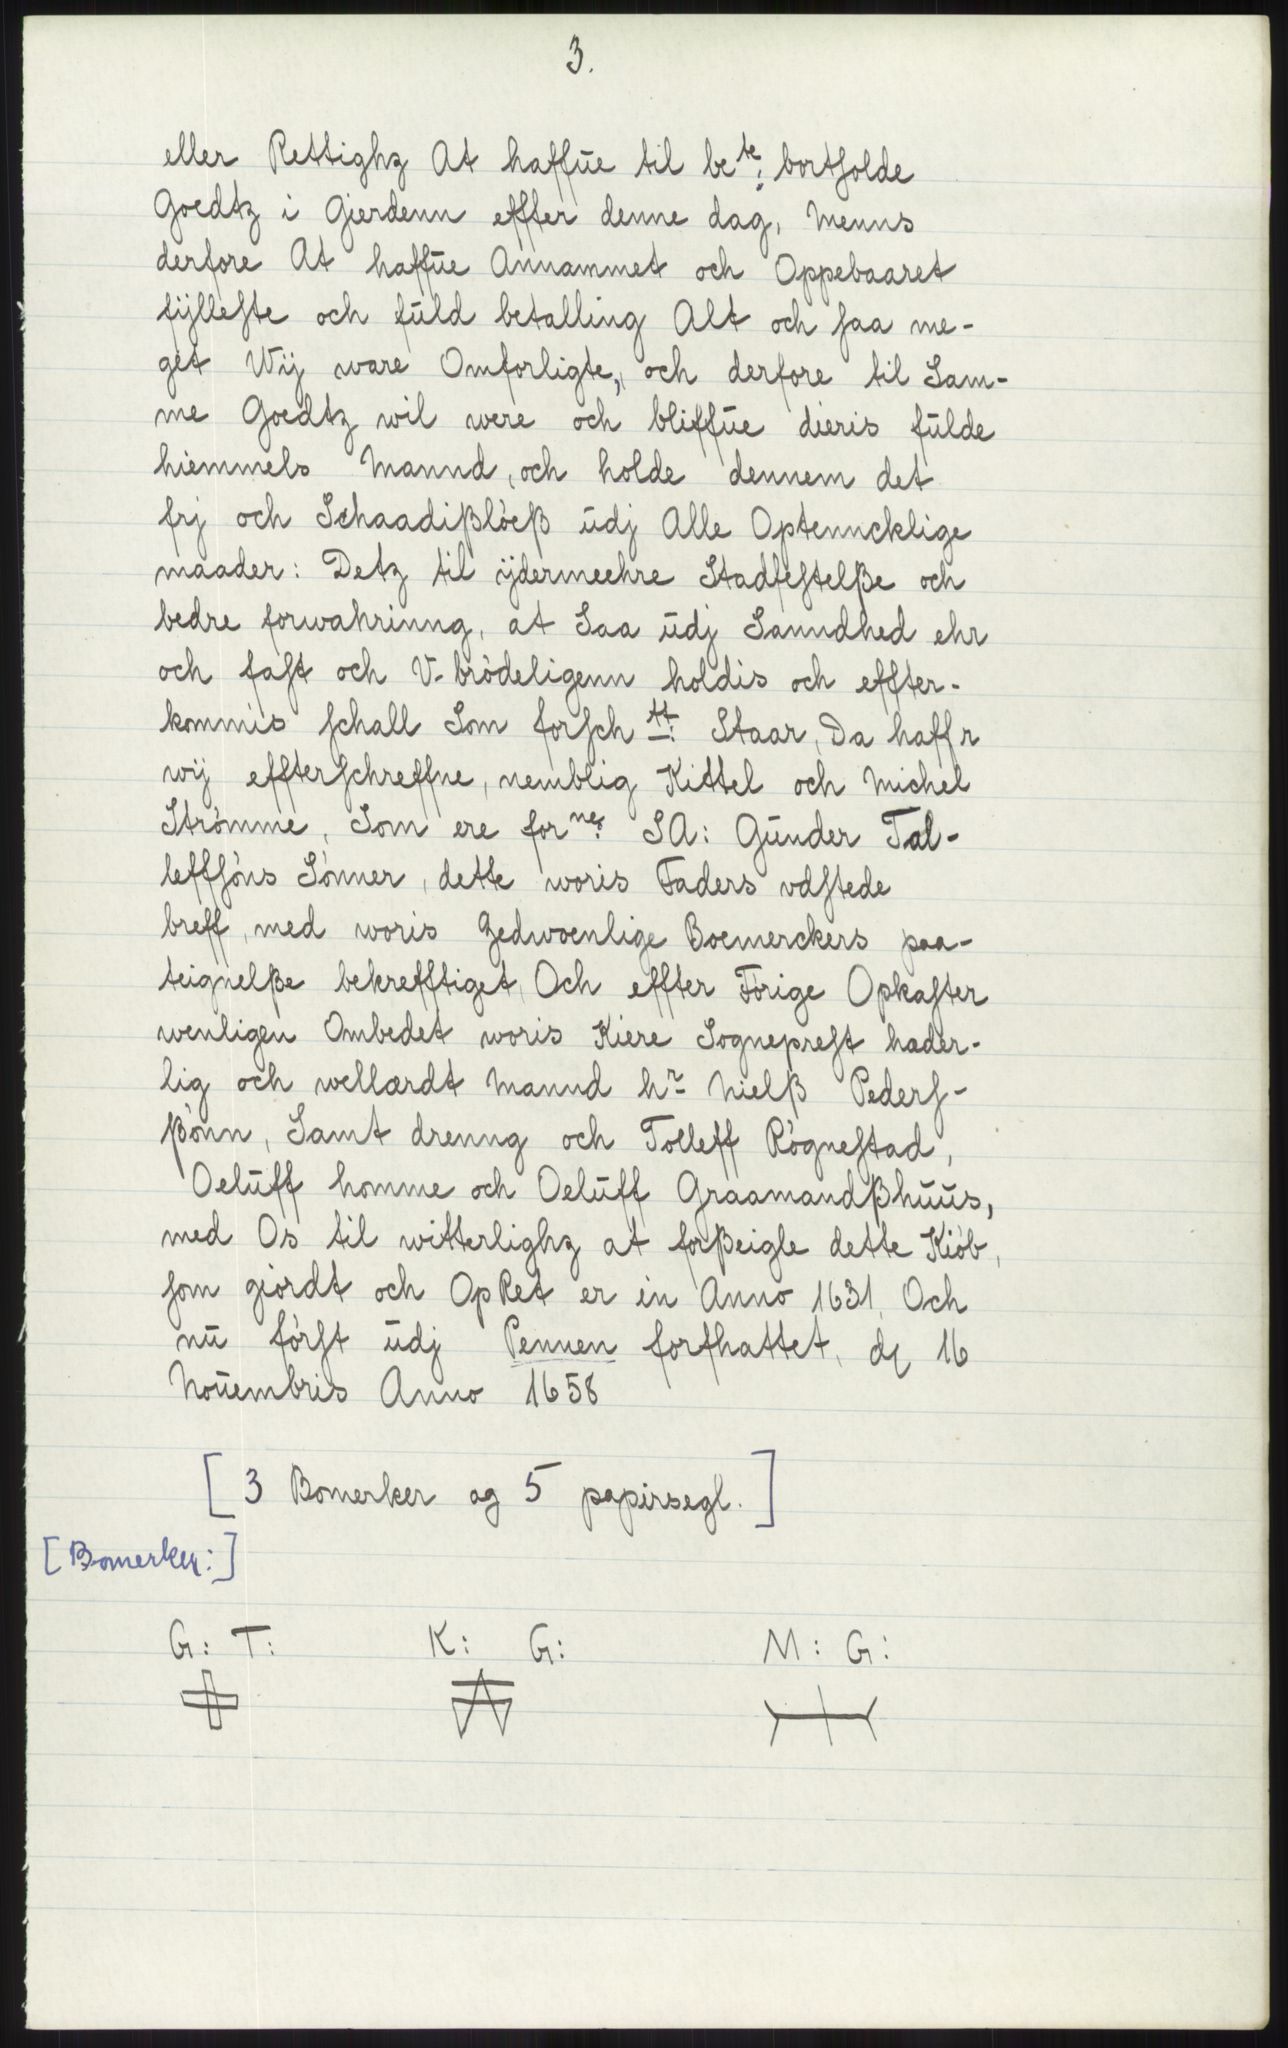 3.
eller Rettighz At haffue til be te: bortsolde
Goedtz i Gierdenn effter denne dag, Menns
derfore At haffue Annammet och Oppebaaret
fÿlleste och fuld betalling Alt och saa me-
get Wij ware Omforligte, och derfore til Sam-
me Goedtz wil were och bliffue dieris fulde
hiemmels Mannd, och holde dennem det
frj och Schaadißlòeß udj Alle Optenncklige
maader: Detz til ÿdermeehre Stadfestelße och
bedre forwahrinng, at Saa udj Sanndhed ehr
och fast och V-bròdeligenn holdis och effter-
kommis schall Som forsch tt: Staar, Da haffr
wij effterschreffne, nemblig Kittel och Michel
Stròmme, Som ere for ne: SA: Gunder Tal-
leffsòns Sònner, dette woris Faders vdstede
breff, med woris Zedwoenlige Boemerckers paa-
teignelße bekrefftiget, Och effter Fòrige Opkaster
wenligen Ombedet woris Kiere Sogneprest hæder-
lig och wellærdt Mannd hr Nielß Peders-
ßònn, Samt drenng och Tolleff Rògnestad,
Oeluff homme och Oeluff Graamandßhuus,
med Os til witterlighz at forßeigle dette Kiòb,
som giòrdt och OpRet er in Anno 1631, Och
nu fòrst udj Pennen forfhattet, dz 16
Nouembris Anno 1658
[3 Bomerker og 5 papirsegl.]
[Bomerker:]
G: T: K: G: M: G: